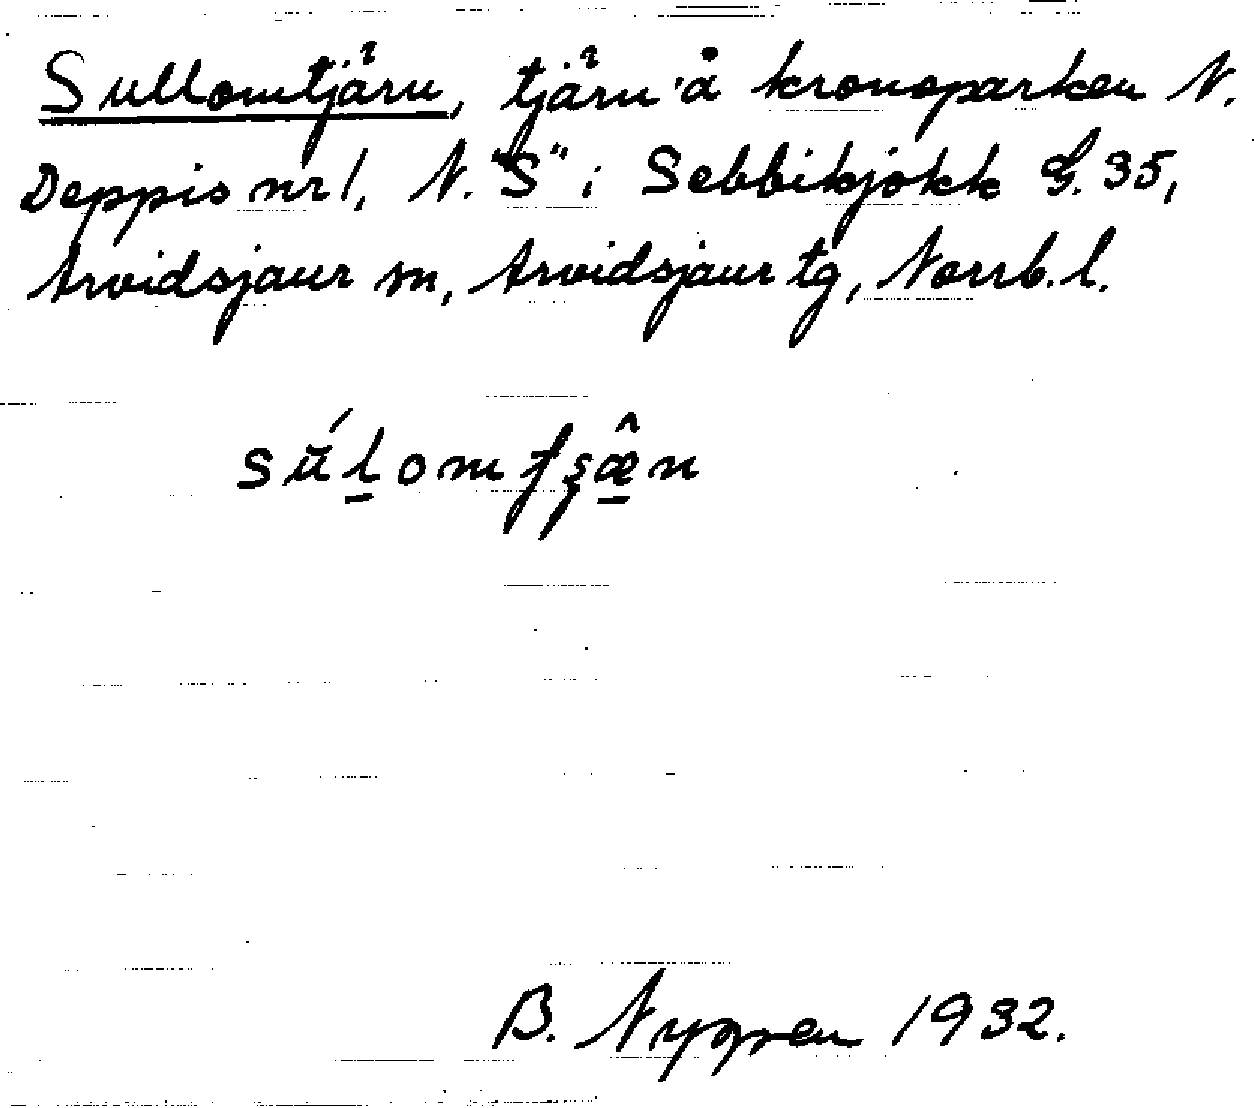 Sullomtjärn, tjärn å kronoparken N.
Deppis nr 1, N. "S" i Sebbikjokk G. 35,
Arvidsjaur sn, Arvidsjaur tg, Norrb. l.
B. Nygren 1932.